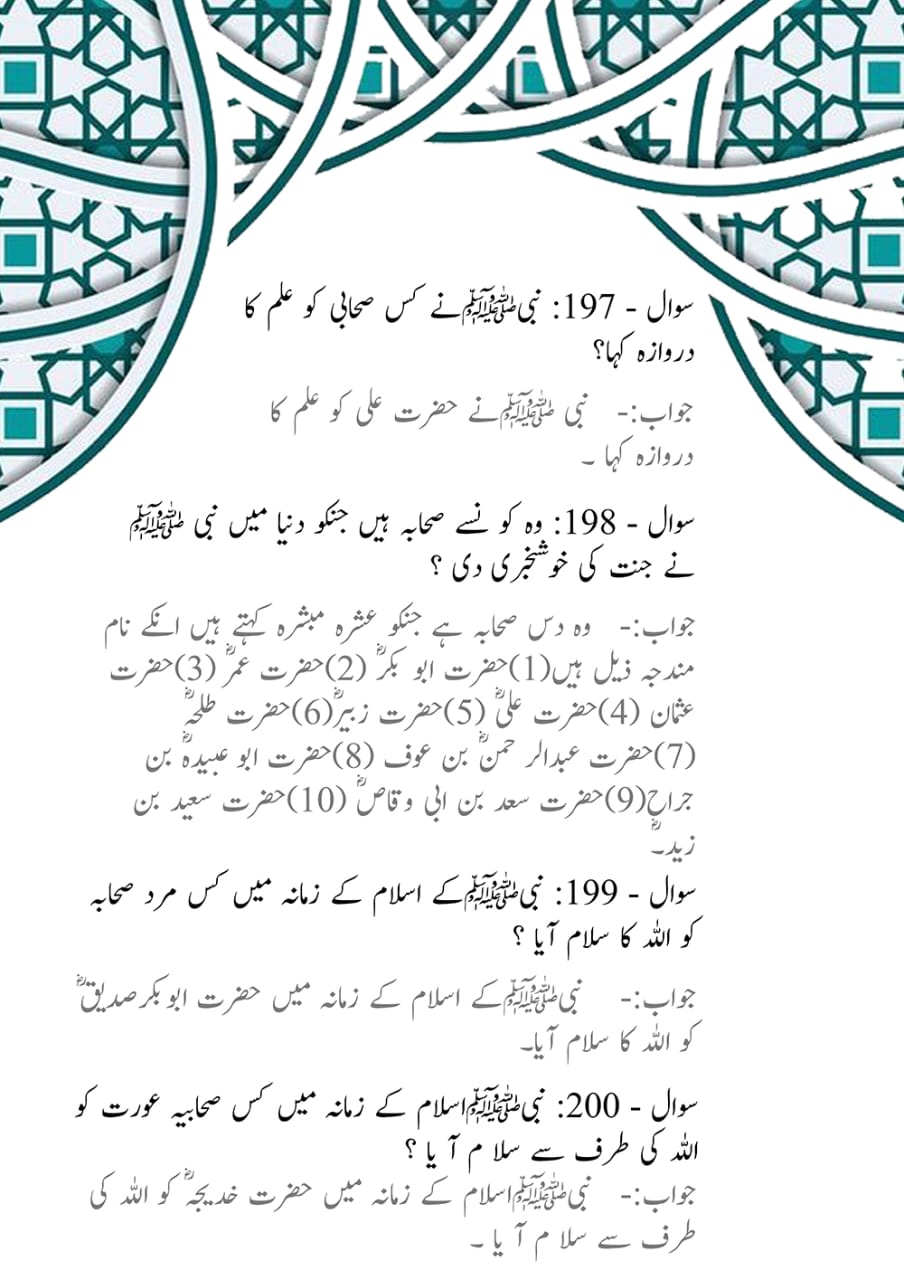 سوال - 197: نبیﷺنے کس صحابی کو علم کا
دروازہ کہا؟
جواب:- نبی ﷺنے حضرت علی کو علم کا
دروازہ کہا ۔
سوال - 198: وہ کو نسے صحابہ ہیں جنکو دنیا میں نبی ﷺ
نے جنت کی خوشخبری دی ؟
جواب:- وہ دس صحابہ ہے جنکو عشرہ مبشرہ کہتے ہیں انکے نام
مندجہ ذیل ہیں(1)حضرت ابو بکرؓ (2)حضرت عمرؓ (3)حضرت
عثمان (4)حضرت علیؓ (5)حضرت زبیرؓ(6)حضرت طلحہؓ
(7)حضرت عبدالر حمنؓ بن عوف (8)حضرت ابو عبیدہؓ بن
جراح(9)حضرت سعد بن ابی وقاصؓ (10)حضرت سعید بن
زیدؓ۔
سوال - 199: نبیﷺکے اسلام کے زمانہ میں کس مرد صحابہ
کو اللہ کا سلام آیا ؟
جواب:- نبیﷺکے اسلام کے زمانہ میں حضرت ابوبکرصدیقؓ
کو اللہ کا سلام آیا۔
سوال - 200: نبیﷺاسلام کے زمانہ میں کس صحابیہ عورت کو
اللہ کی طرف سے سلا م آ یا ؟
جواب:- نبیﷺاسلام کے زمانہ میں حضرت خدیجہؓ کو اللہ کی
طرف سے سلا م آ یا ۔